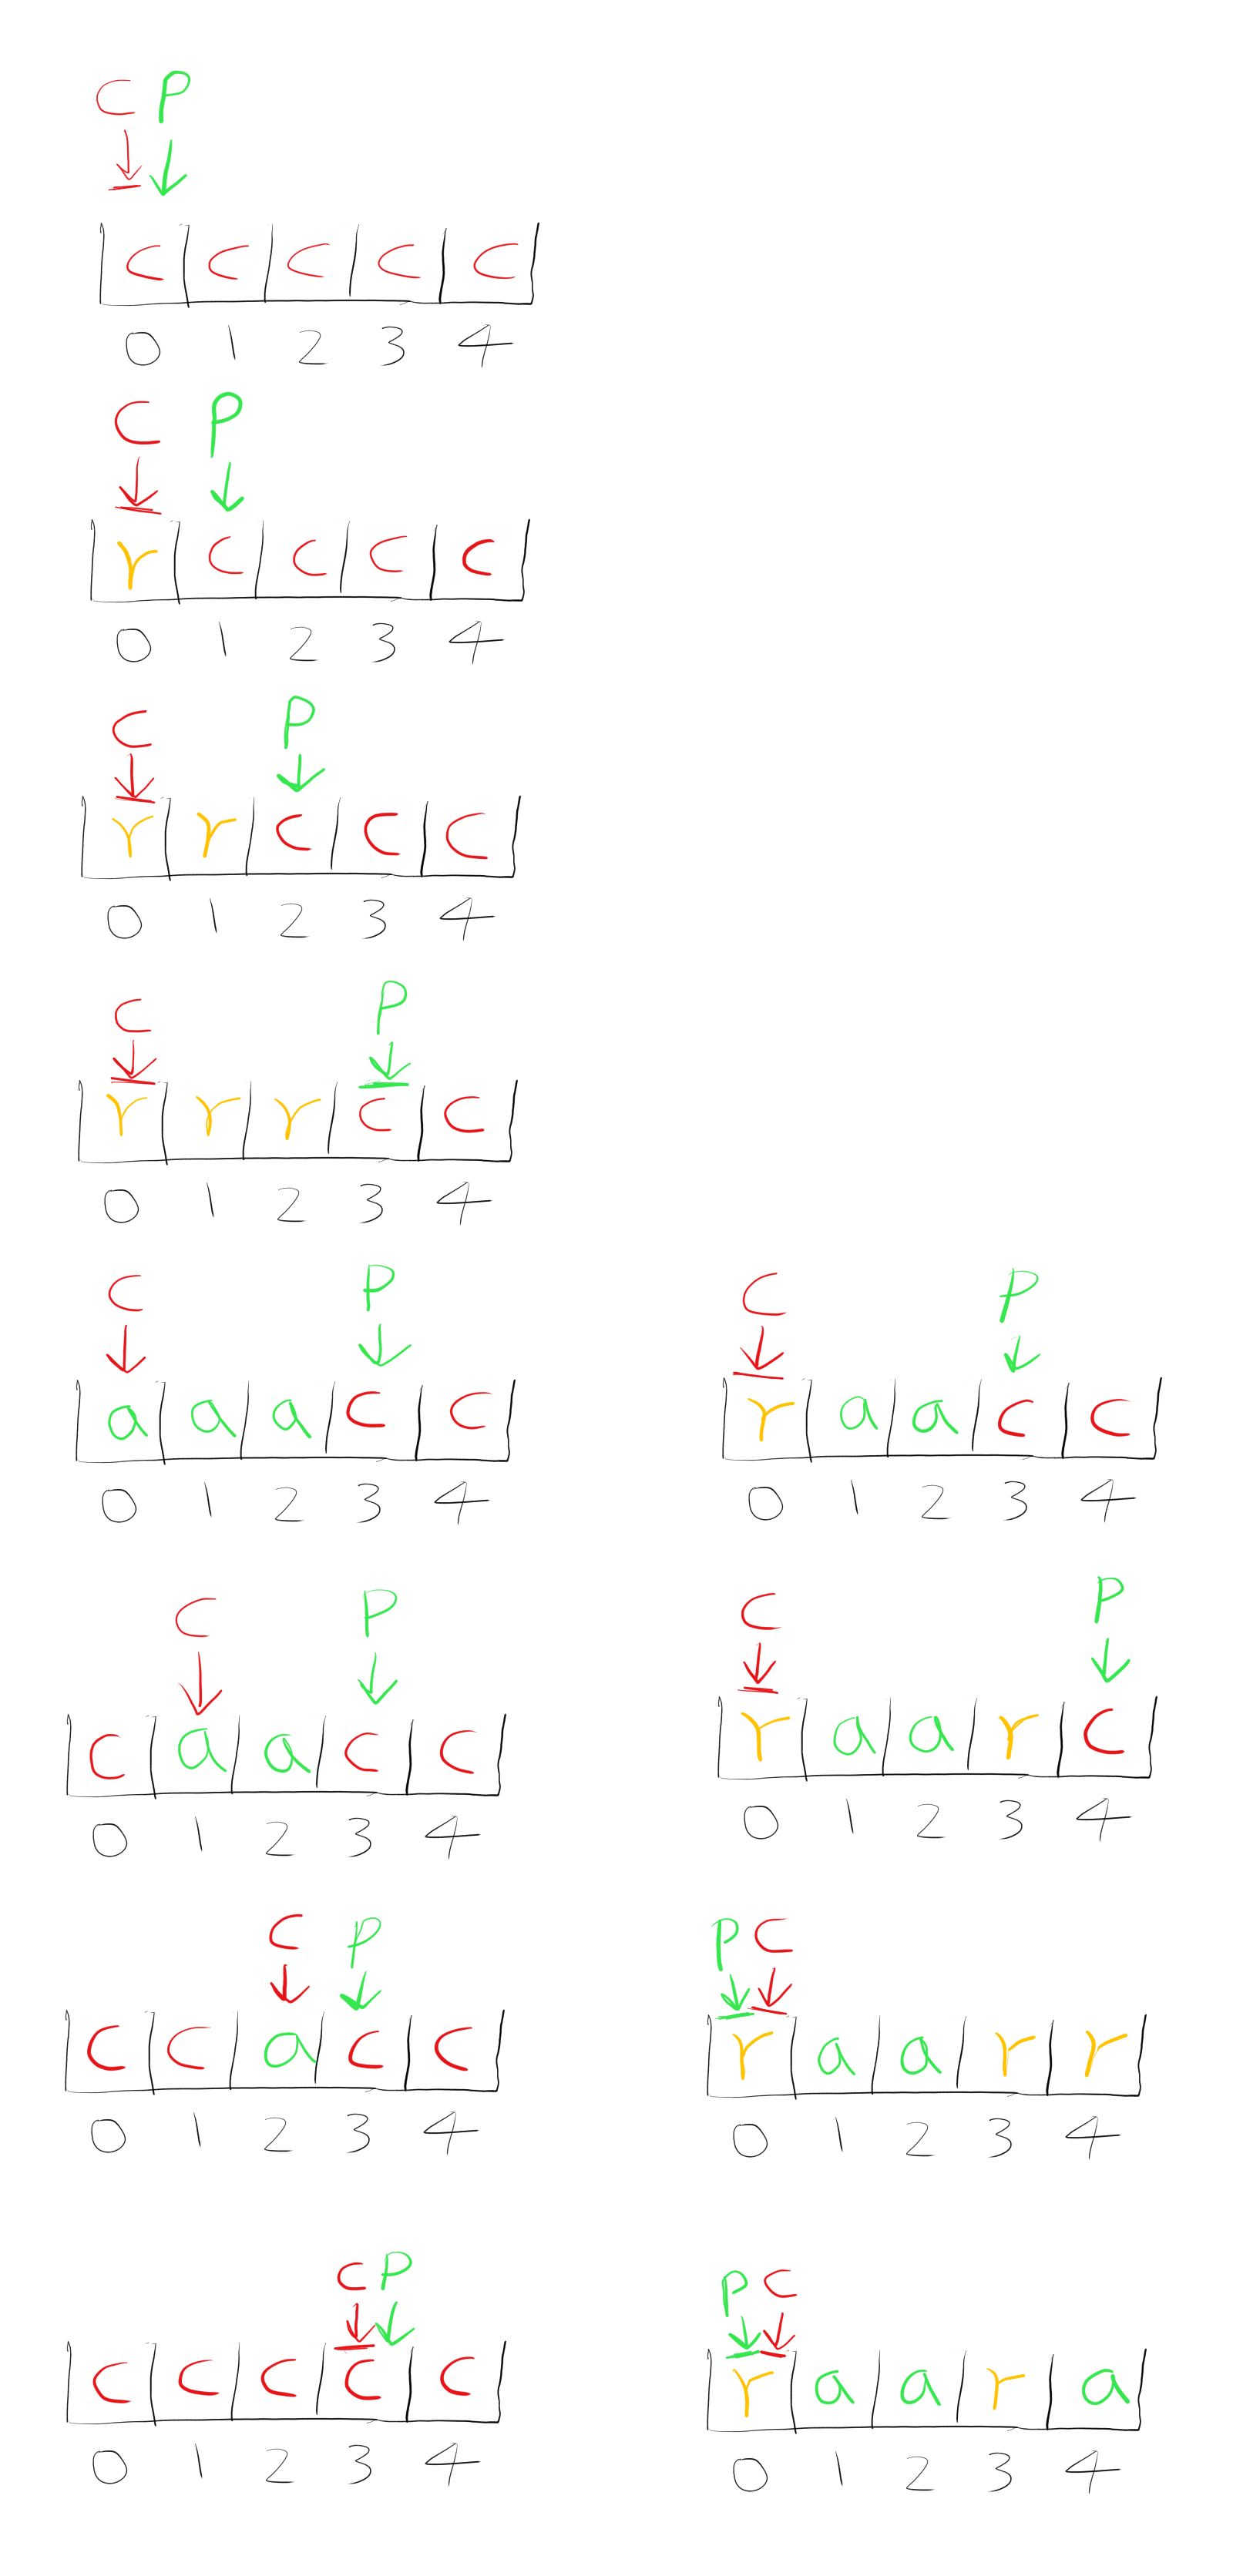 C P
C C C C C
0 1 2 3 4
C P
r C C C C
0 1 2 3 4
C P
r r C C C
0 1 2 3 4
C P
r r r C C
0 1 2 3 4
C P
a a a C C
0 1 2 3 4
C P
r a a C C
0 1 2 3 4
C P
C a a C C
0 1 2 3 4
C P
r a a r C
0 1 2 3 4
C P
C C a C C
0 1 2 3 4
P C
r a a r r
0 1 2 3 4
C P
C C C C C
0 1 2 3 4
P C
r a a r a
0 1 2 3 4